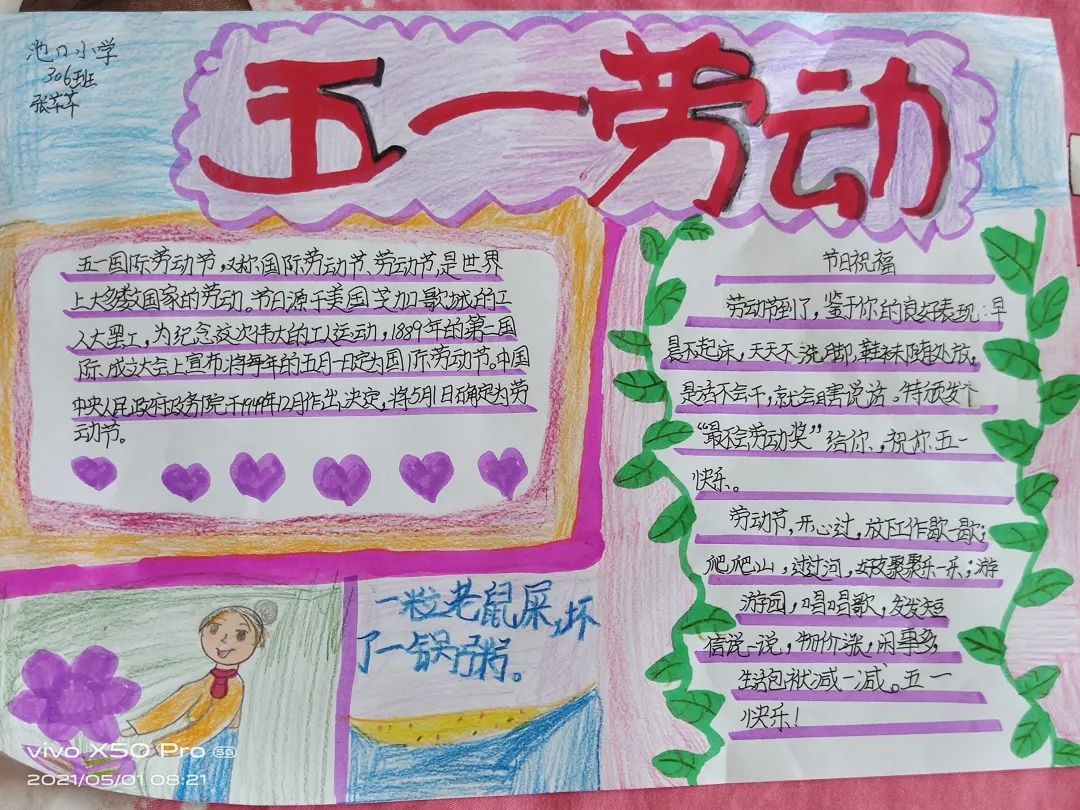 池口小学
306班
张芊芊
五一劳动
五一国际劳动节，又称国际劳动节、劳动节，是世界
上大多数国家的劳动。节日源于美国芝加歌城的工
人大罢工，为纪念这次伟大的工人运动，1889年的第一国
际、成立大会上宣布将每年的五月一日定为国际劳动节。中国
中央人民政府政务院于1949年12月作出决定，将5月1日确定为劳
动节。
节日祝福
劳动节到了，鉴于你的良好表现：早
晨不起床，天天不洗脚，鞋袜随处放，
是活不会干，就会瞎说话。特颁发个
“最不会劳动奖”给你，祝你五一
快乐。
劳动节，开心过，放下工作歇一歇；
爬爬山，过过河，好友聚聚乐一乐；游
游园，唱唱歌，发发短
信说一说，物价涨，闲事多，
生活包袱减一减。五一
快乐！
一粒老鼠屎，坏
了一锅粥。
vivo X50 Pro 5G
2021/05/01 08:21